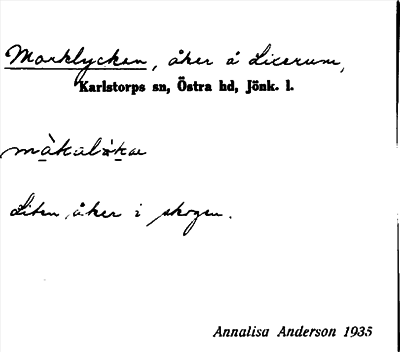 Marklyckan, åker å Licerum,
Karlstorps sn, Östra hd, Jönk. l.
Liten åker i skogen.
Annalisa Anderson 1935